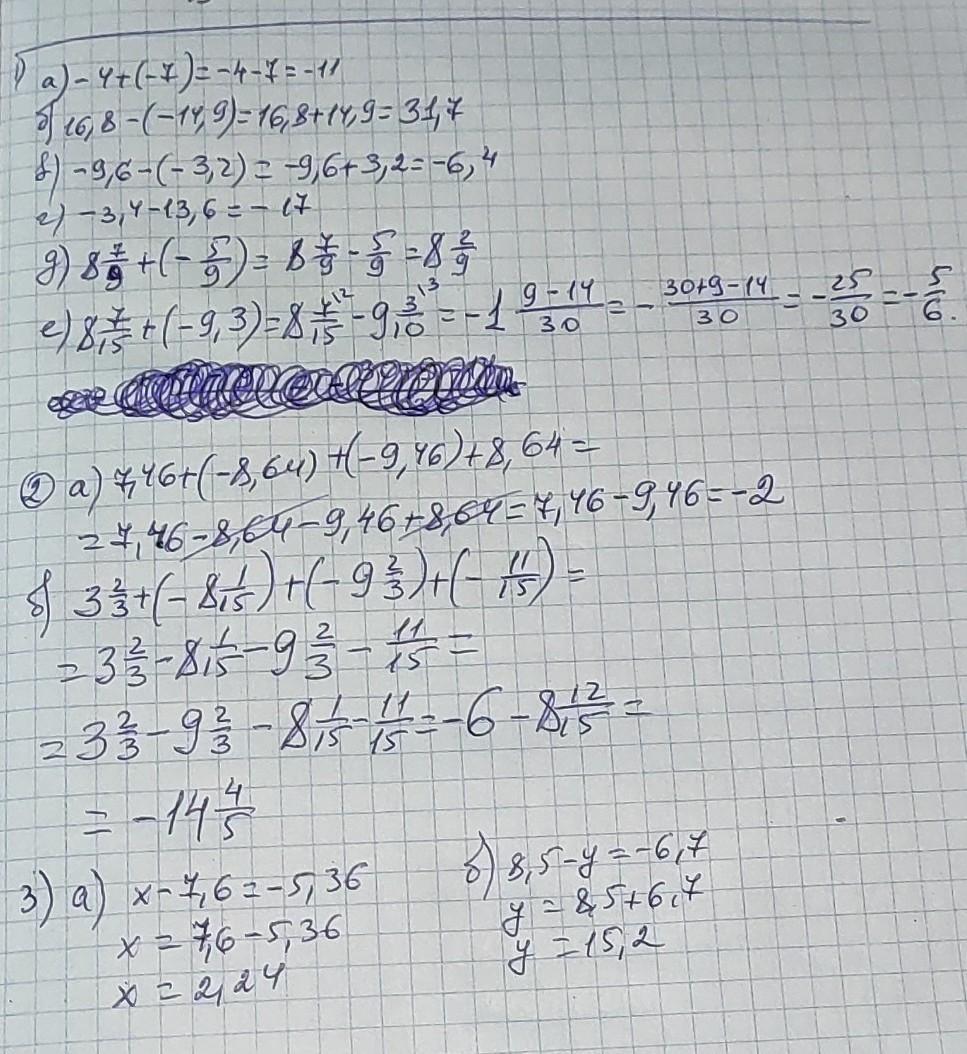 1) а) -4+(-7)=-4-7=-11
б) 16,8-(-14,9)=16,8+14,9=31,7
в) -9,6-(-3,2)=-9,6+3,2=-6,4
г) -3,4-13,6=-17
д) 8 7/9+(-5/9)=8 7/9-5/9=8 2/9
е) 8 7/15+(-9,3)=8 7/15\2-9 3/10\3=-1 (9-14)/30=-(30+9-14)/30=-25/30=-5/6.
2 а) 7,46+(-8,64)+(-9,46)+8,64=
=7,46-8,64-9,46+8,64=7,46-9,46=-2
б) 3 2/3+(-8 1/15)+(-9 2/3)+(-11/15)=
=3 2/3-8 1/15-9 2/3-11/15=
=3 2/3-9 2/3-8 1/15-11/15=-6-8 12/15=
=-14 4/5
3) а) x-7,6=-5,36
x=7,6-5,36
x=2,24
б) 8,5-y=-6,7
y=8,5+6,7
y=15,2